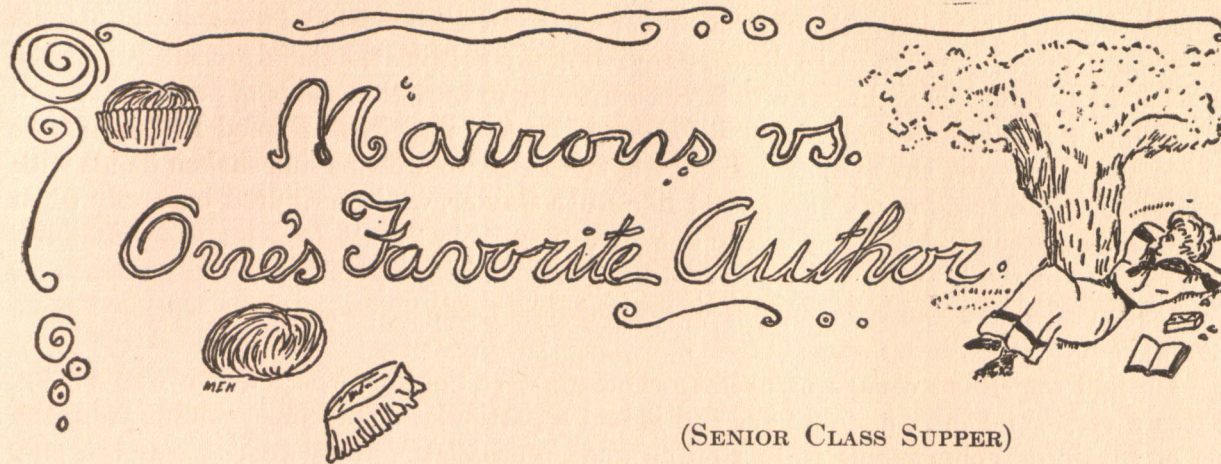 Marrons vs.
One's Favorite Author.
MEH
(SENIOR CLASS SUPPER)